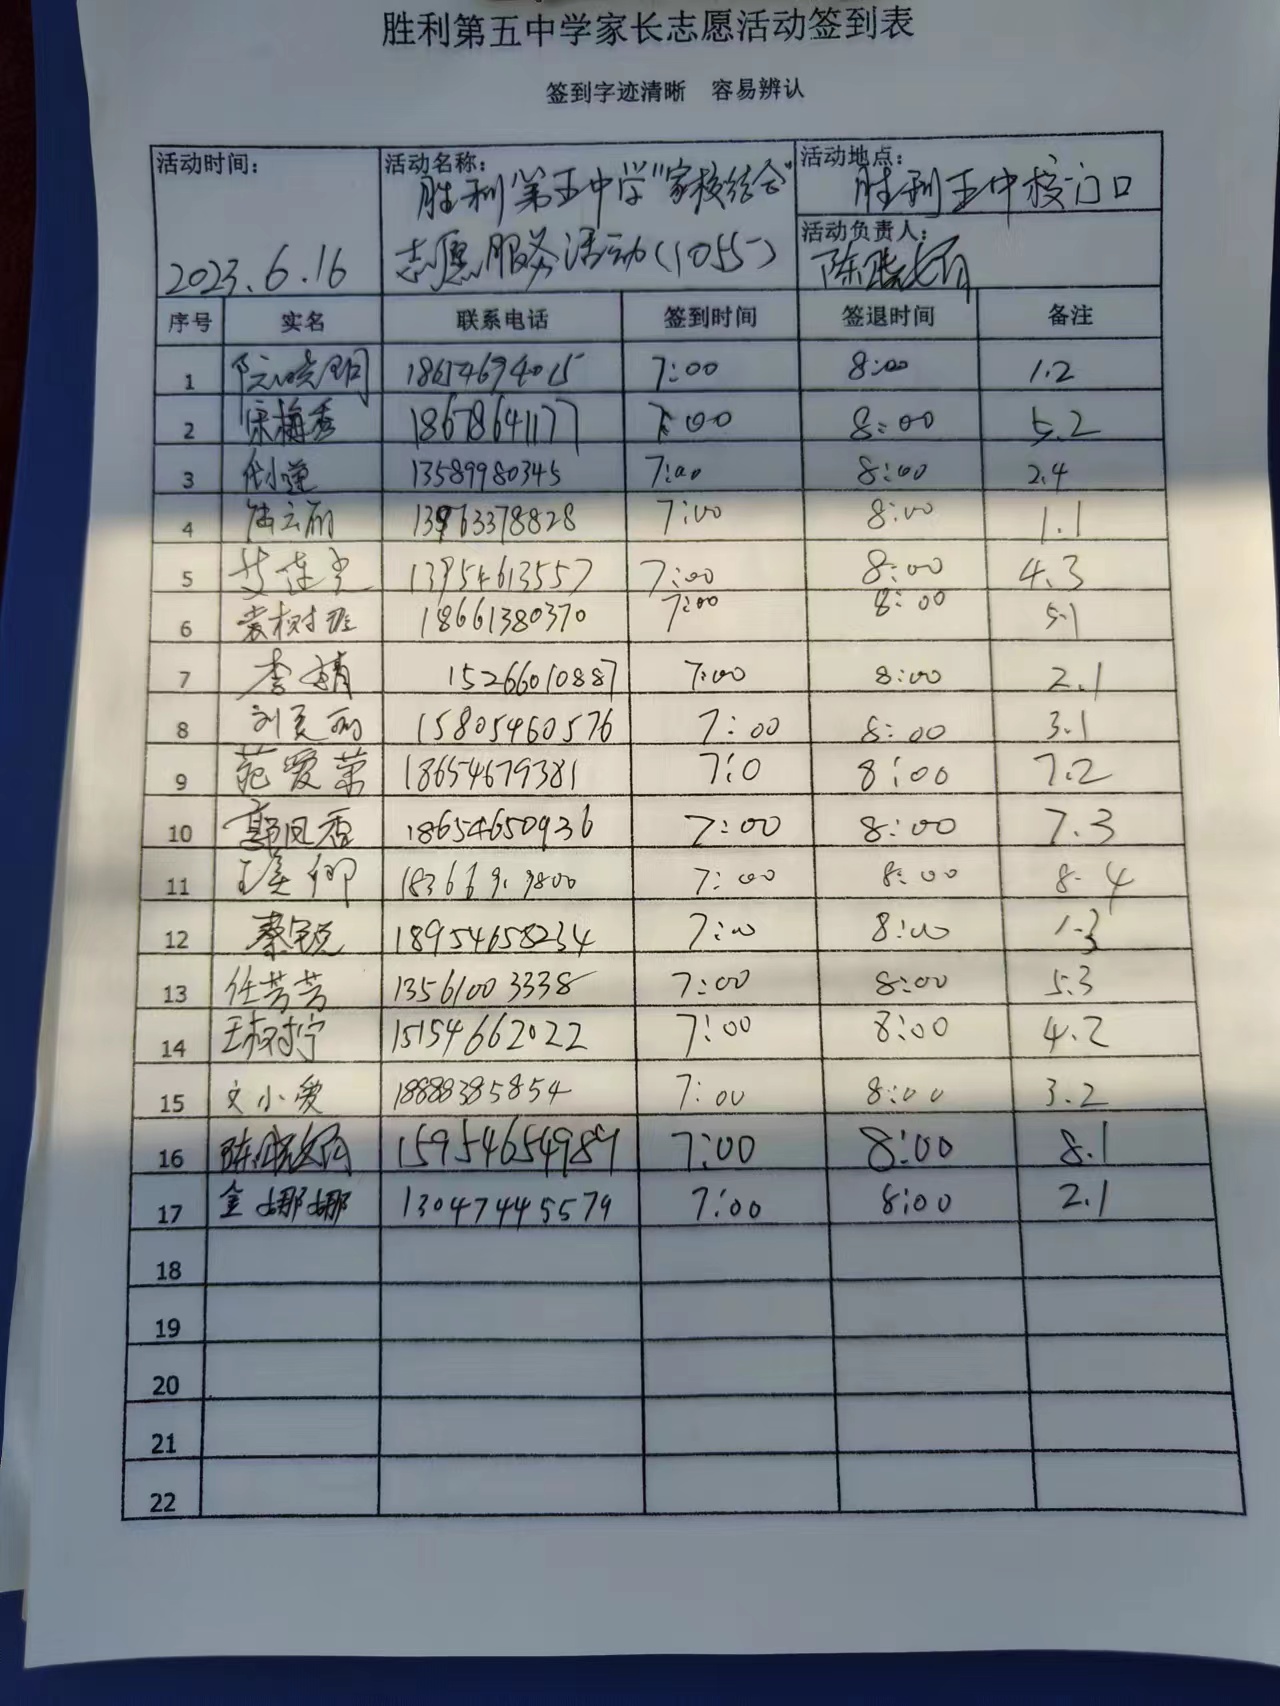 胜利第五中学家长志愿活动签到表
签到字迹清晰 容易辨认
活动时间: 2023.6.16
活动名称: 胜利第五中学"家校结合"
志愿服务活动(1055)
活动地点: 胜利五中校门口
活动负责人: 陈
序号 实名 联系电话 签到时间 签退时间 备注
1 7:00 8:00 1.2
2 宋梅秀 18678641177 7:00 8:00 5.2
3 代小莲 13589980345 7:00 8:00 2.4
4 陆云丽 13963378828 7:00 8:00 1.1
5 艾连光 13954613557 7:00 8:00 4.3
6 袁树 18661380370 7:00 8:00 5.1
7 李靖 15266010887 7:00 8:00 2.1
8 刘 15805460576 7:00 8:00 3.1
9 范爱荣 18654679381 7:0 8:00 7.2
10 郭凤香 18654650936 7:00 8:00 7.3
11 王 卿 7:00 8:00 8.4
12 蔡 18954658234 7:00 8:00 1.3
13 任芳芳 13561003338 7:00 8:00 5.3
14 王树宁 15154662022 7:00 8:00 4.2
15 文小爱 18888385854 7:00 8:00 3.2
16 陈晓 15954654989 7:00 8:00 8.1
17 金娜娜 13047445579 7:00 8:00 2.1
18
19
20
21
22